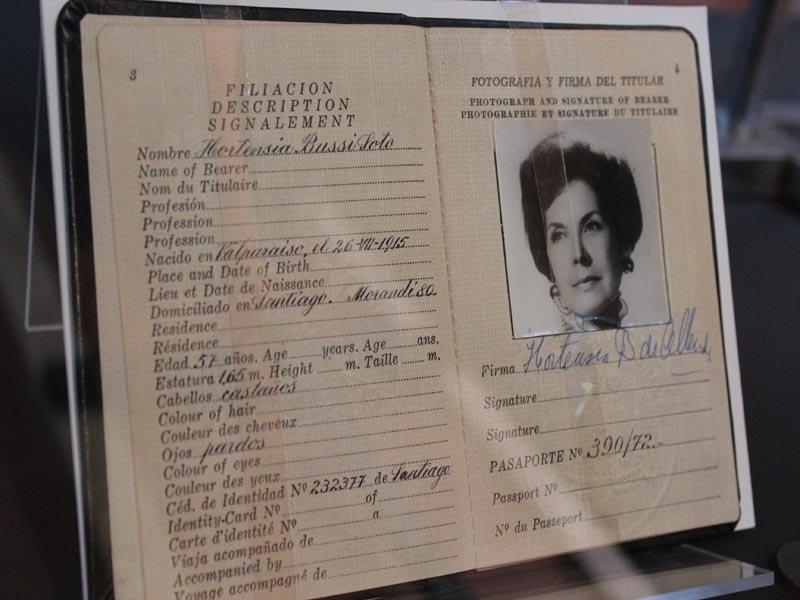 3
FILIACION
DESCRIPTION
SIGNALEMENT
Nombre Hortensia Bussi Soto
Name of Bearer
Nom du Titulaire
Profesión
Profession
Profession
Nacido en Valparaiso, el 26-VII-1915
Place and Date of Birth
Lieu et Date de Naissance
Domiciliado en Santiago. Morandé 80.
Residence
Résidence
Edad 57 años. Age years. Age ans.
Estatura 1,65 m. Height m. Taille m.
Cabellos castaños
Colour of hair
Couleur des cheveux
Ojos pardos
Colour of eyes
Couleur des yeux
Céd. de Identidad Nº 232377 de Santiago
Identity-Card Nº of
Carte d'identité Nº a
Viaja acompañado de
Accompanied by
Voyage accompagné de
4
FOTOGRAFIA Y FIRMA DEL TITULAR
PHOTOGRAPH AND SIGNATURE OF BEARER
PHOTOGRAPHIE ET SIGNATURE DU TITULAIRE
Firma Hortensia B de Allende
Signature
Signature
PASAPORTE Nº 390/72.-
Passport Nº
Nº du Passeport